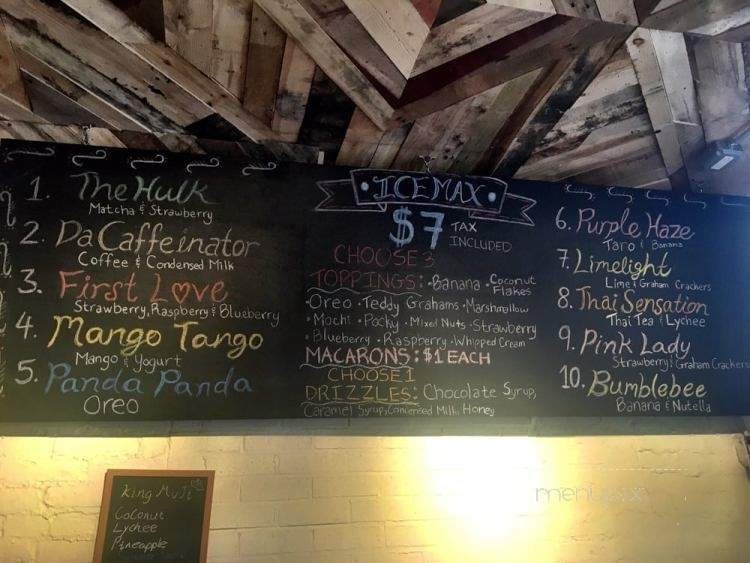 1. The Hulk
Matcha & Strawberry
2. Da Caffeinator
Coffee & Condensed Milk
3. First Love
Strawberry, Raspberry & Blueberry
4. Mango Tango
Mango & Yogurt
5. Panda Panda
Oreo
ICEMAX
$7 TAX
INCLUDED
CHOOSE 3
TOPPINGS: • Banana • Coconut
Flakes
• Oreo • Teddy Grahams • Marshmallow
• Mochi • Pocky • Mixed Nuts • Strawberry
• Blueberry • Raspberry • Whipped Cream
MACARONS: $1 EACH
CHOOSE 1
DRIZZLES: Chocolate Syrup,
Caramel Syrup, Condensed Milk, Honey
6. Purple Haze
Taro & Banana
7. Limelight
Lime & Graham Crackers
8. Thai Sensation
Thai Tea & Lychee
9. Pink Lady
Strawberry & Graham Crackers
10. Bumblebee
Banana & Nutella
King Muji
Coconut
Lychee
Pineapple
menupix